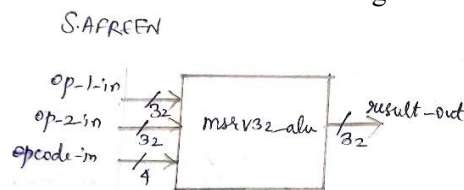 S.AFREEN
op-1-in
32
op-2-in
32
opcode-in
4
msrv32_alu
result-out
32